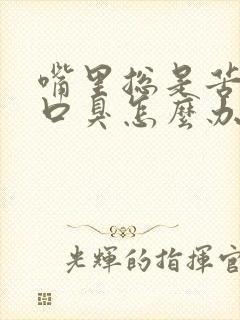 嘴里总是苦
口臭怎麼办
光輝的指揮官